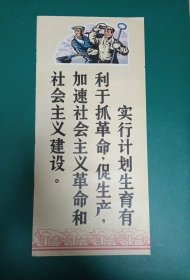 实行计划生育有
利于抓革命，促生产，
加速社会主义革命和
社会主义建设。